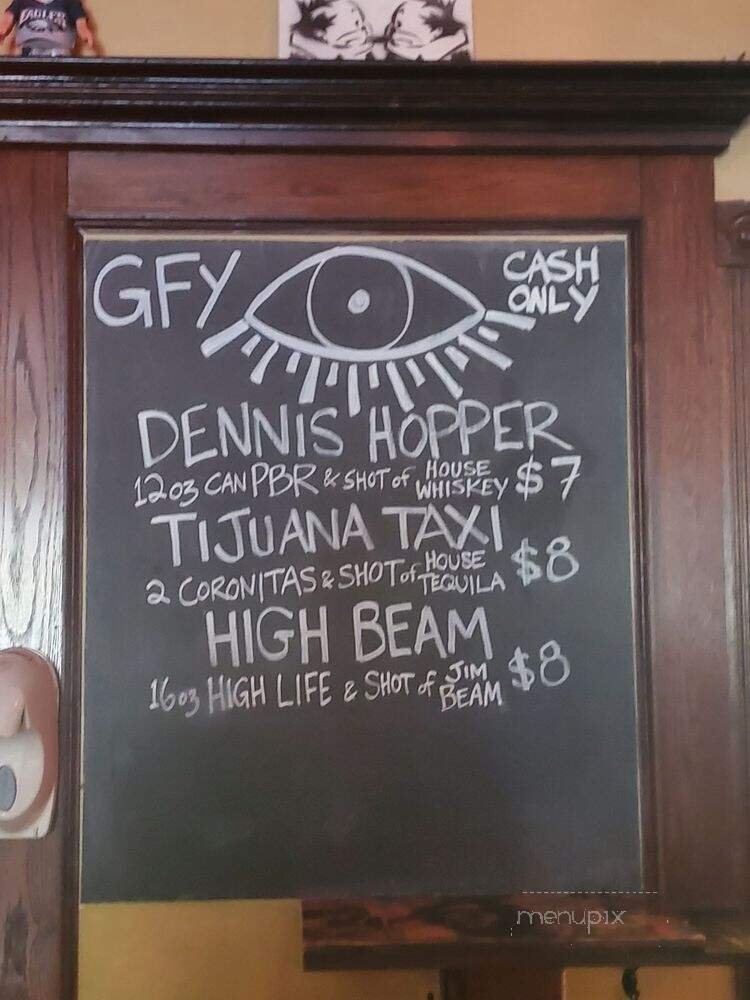 EAGLES
GFY
CASH
ONLY
DENNIS HOPPER
12oz CAN PBR & SHOT of HOUSE WHISKEY $7
TIJUANA TAXI
2 CORONITAS & SHOT of HOUSE TEQUILA $8
HIGH BEAM
16oz HIGH LIFE & SHOT of JIM BEAM $8
menupix